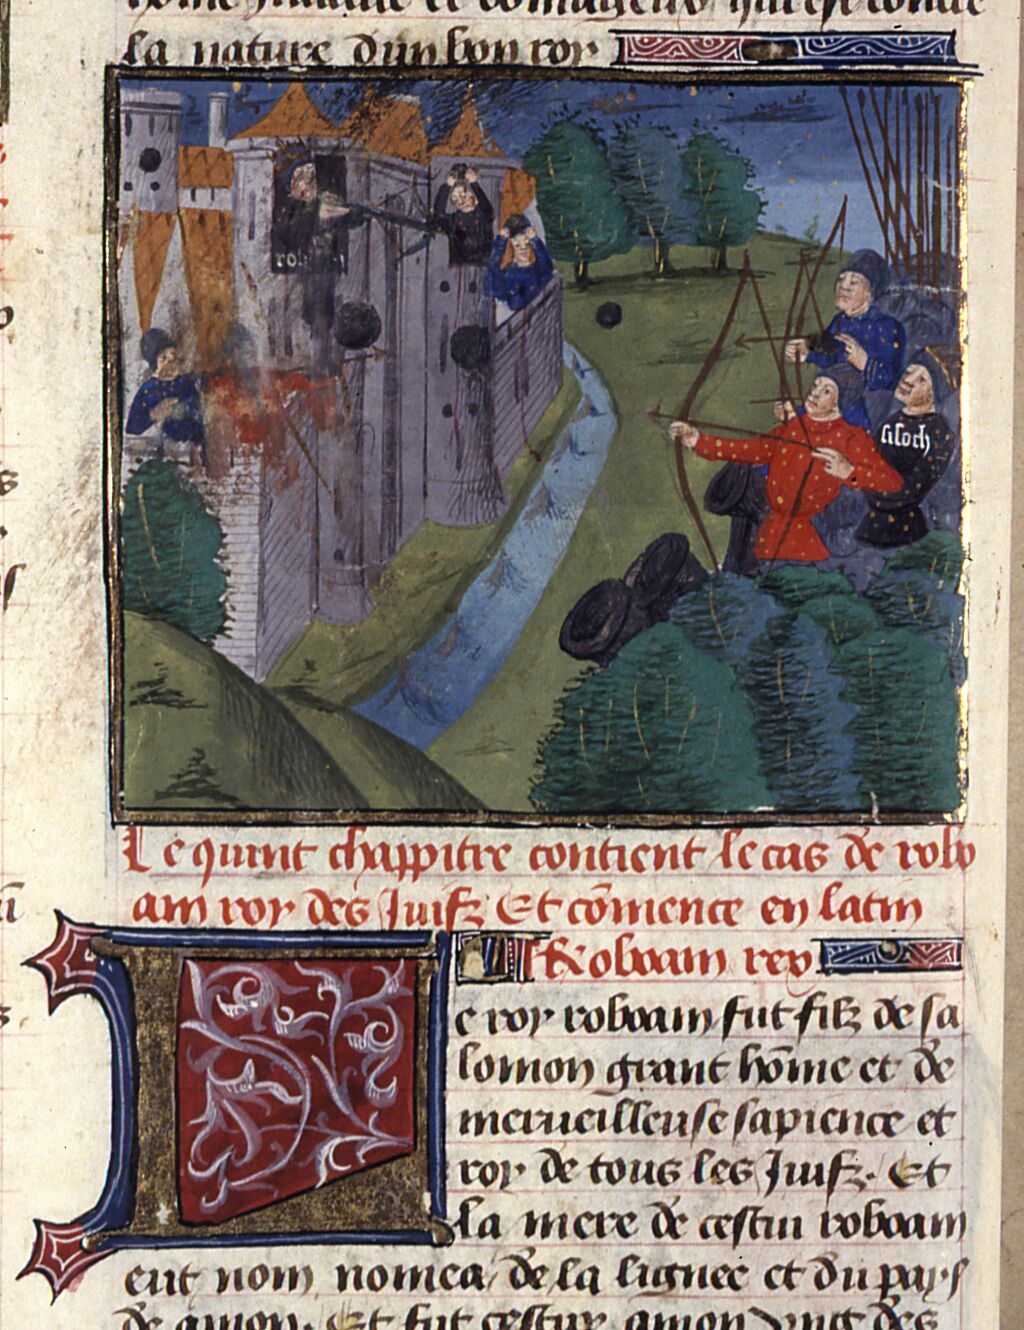 la nature dun bon roy
sisoch
Le quint chappitre contient le cas de robo
am roy des Juifz Et cõmence en latin
Roboam rex
Le roy roboam fut filz de sa
lomon grant hõme et de
merueilleuse sapience et
roy de tous les Juifz. Et
la mere de cestui roboam
eut nom nomea, de la lignee et du pays
de amon. Et fut cestuy amon vng des